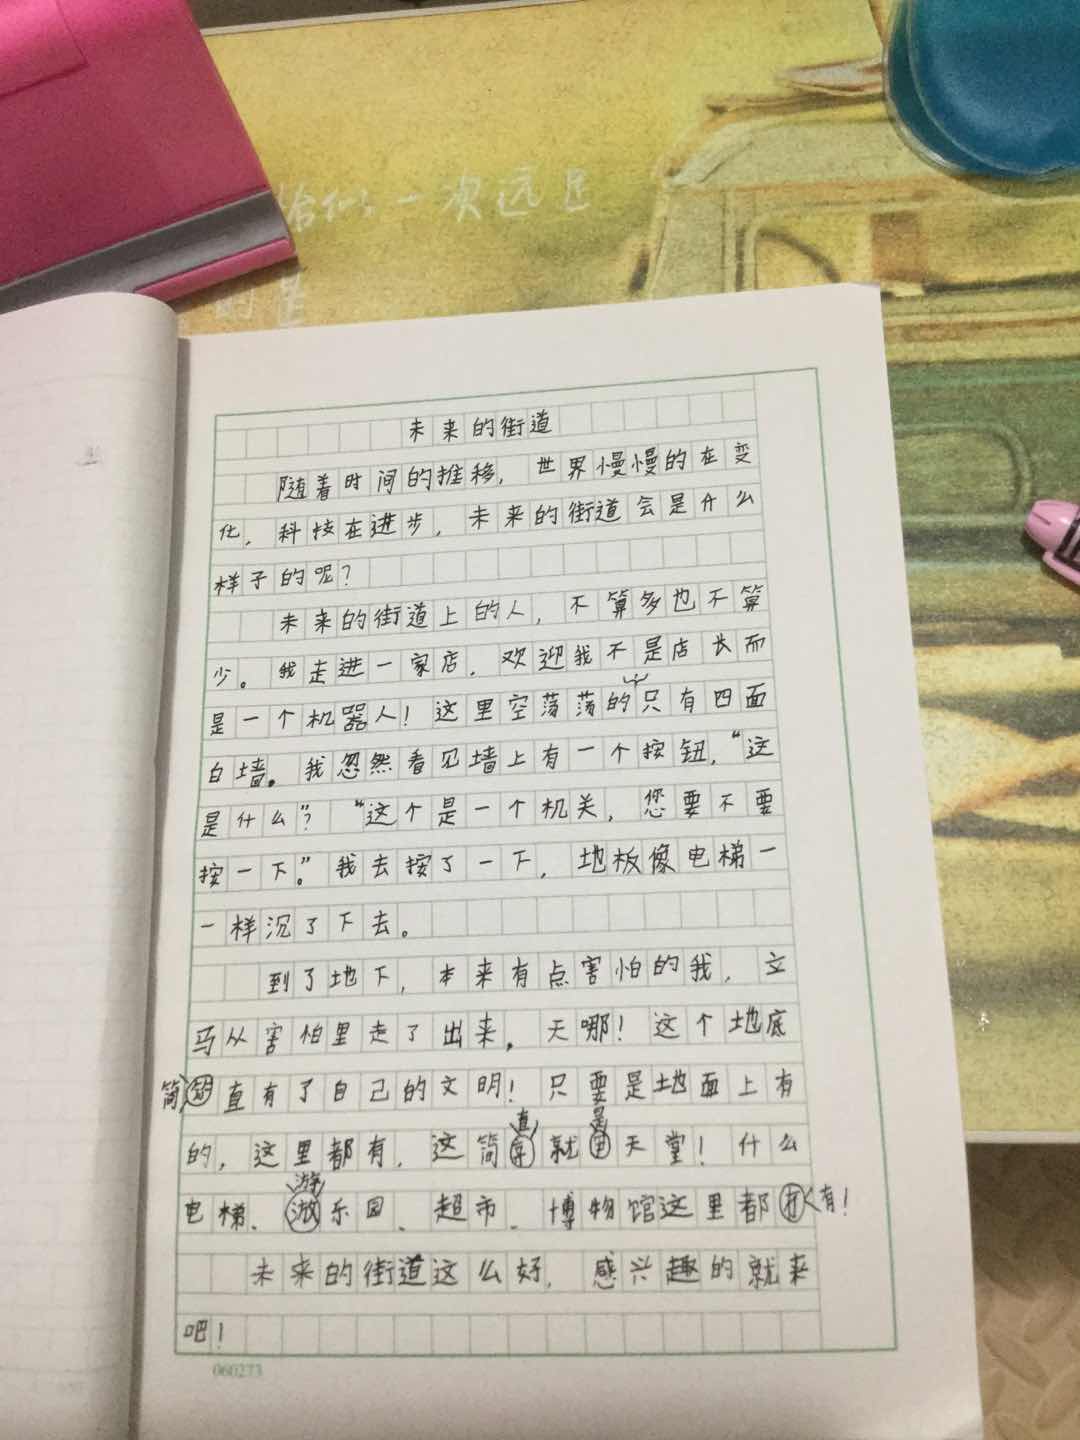 恰似一次远足
的
未来的街道
随着时间的推移，世界慢慢的在变
化，科技在进步，未来的街道会是什么
样子的呢？
未来的街道上的人，不算多也不算
少。我走进一家店，欢迎我不是店长而
是一个机器人！这里空荡荡的，只有四面
白墙。我忽然看见墙上有一个按钮，“这
是什么”？“这个是一个机关，您要不要
按一下。”我去按了一下，地板像电梯一
一样沉了下去。
到了地下，本来有点害怕的我，立
马从害怕里走了出来。天哪！这个地底
简直有了自己的文明！只要是地面上有
的，这里都有，这简直就是天堂！什么
电梯、游乐园、超市、博物馆这里都有！
未来的街道这么好，感兴趣的就来
吧！
060273